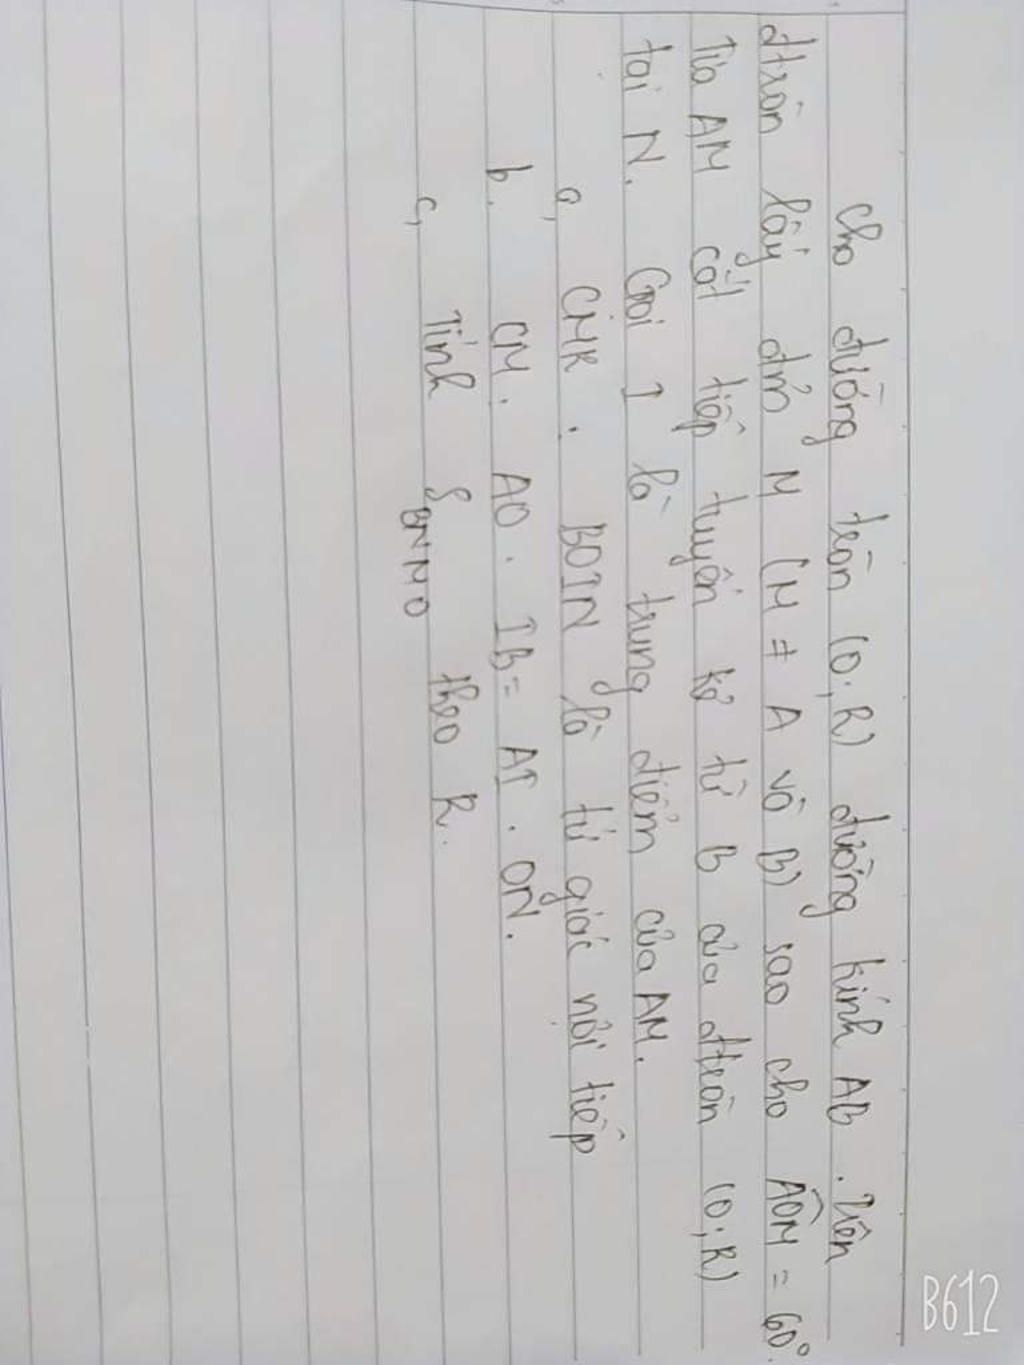 Cho đường tròn (O; R) đường kính AB. Trên
đtròn lấy đm M (M ≠ A và B) sao cho AÔM = 60°.
Tia AM cắt tiếp tuyến kẻ từ B của đtròn (O; R)
tại N. Gọi I là trung điểm của AM.
a, CMR. BOIN là tứ giác nội tiếp
b. CM. AO. IB = AI. ON.
c, Tính S_BNMO theo R.
B612